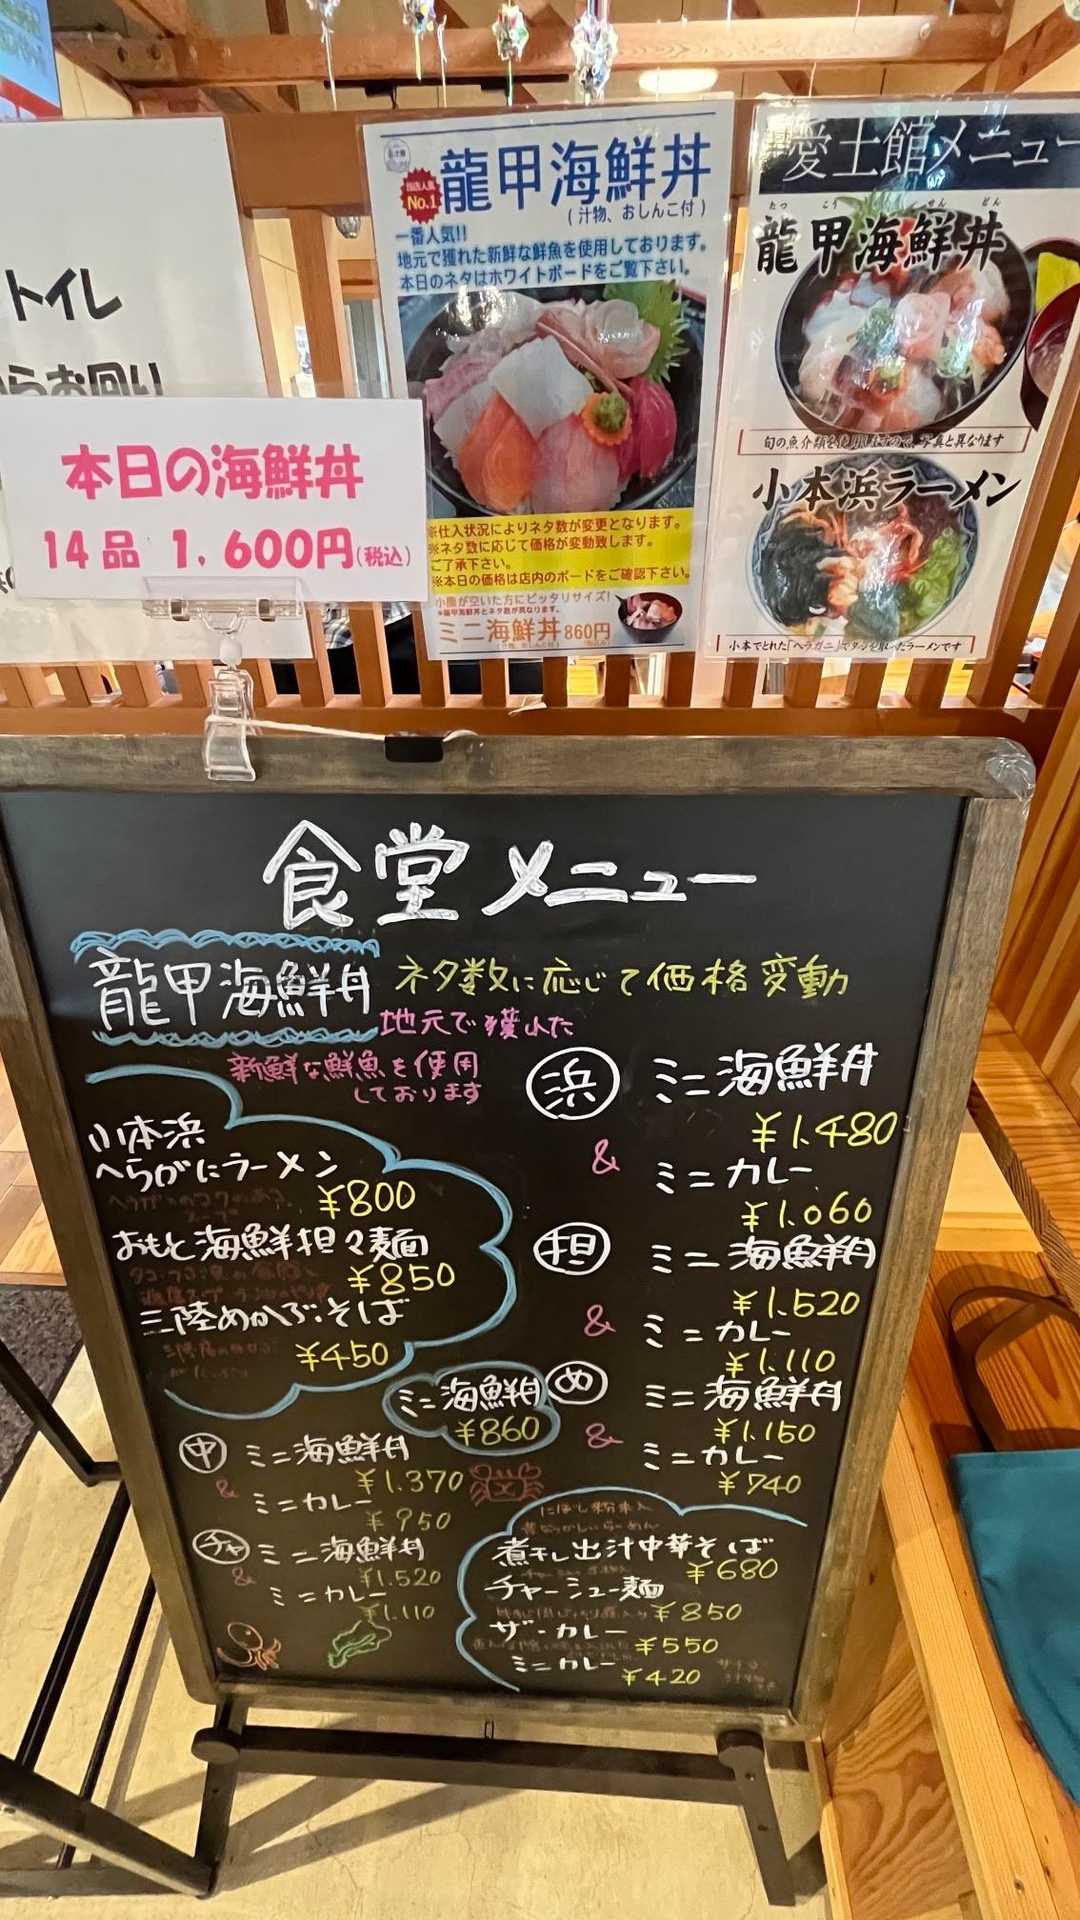 トイレ
本日の海鮮丼
14品 1,600円(税込)
当店人気
No.1
龍甲海鮮丼
(汁物、おしんこ付)
一番人気!!
地元で獲れた新鮮な鮮魚を使用しております。
本日のネタはホワイトボードをご覧下さい。
※仕入状況によりネタ数が変更となります。
※ネタ数に応じて価格が変動致します。
ご了承下さい。
※本日の価格は店内のボードをご確認下さい。
小腹が空いた方にピッタリサイズ!
*龍甲海鮮丼とネタ数が異なります。
ミニ海鮮丼860円
愛土館メニュー
龍甲海鮮丼
旬の魚介類を使用しますので、写真と異なります
小本浜ラーメン
小本でとれた「ヘラガニ」でダシを取ったラーメンです
食堂メニュー
龍甲海鮮丼 ネタ数に応じて価格変動
地元で獲れた
新鮮な鮮魚を使用
しております
小本浜
へらがにラーメン
¥800
おもと海鮮担々麺
¥850
三陸めかぶそば
¥450
ミニ海鮮丼
¥860
浜 ミニ海鮮丼
¥1.480
& ミニカレー
¥1.060
担 ミニ海鮮丼
¥1.520
& ミニカレー
¥1.110
め ミニ海鮮丼
¥1.150
& ミニカレー
¥740
中 ミニ海鮮丼
¥1.370
& ミニカレー
¥950
チャ ミニ海鮮丼
¥1.520
& ミニカレー
¥1.110
にぼし粉末入
昔なつかしいらーめん
煮干し出汁中華そば
¥680
チャーシュー麺
¥850
ザ・カレー
¥550
ミニカレー
¥420